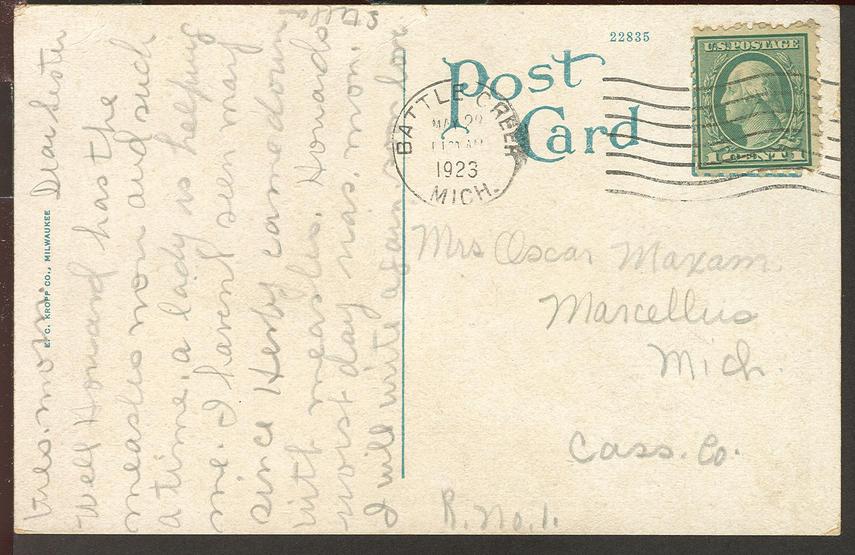 22835
Post
Card
U.S. POSTAGE
1 CENT 1
BATTLE CREEK
29
1923
MICH.
E. C. KROPP CO., MILWAUKEE
Mrs Oscar Maxam
Marcellus
Mich.
Cass. Co.
R. No. 1.
Tues. morn. Dear Sister
Well Howard has the
measles now and such
a time. a lady is helping
me. I havent seen Mary
since Herby came down
with measles. Howards
worst day was mon.
I will write again soon love